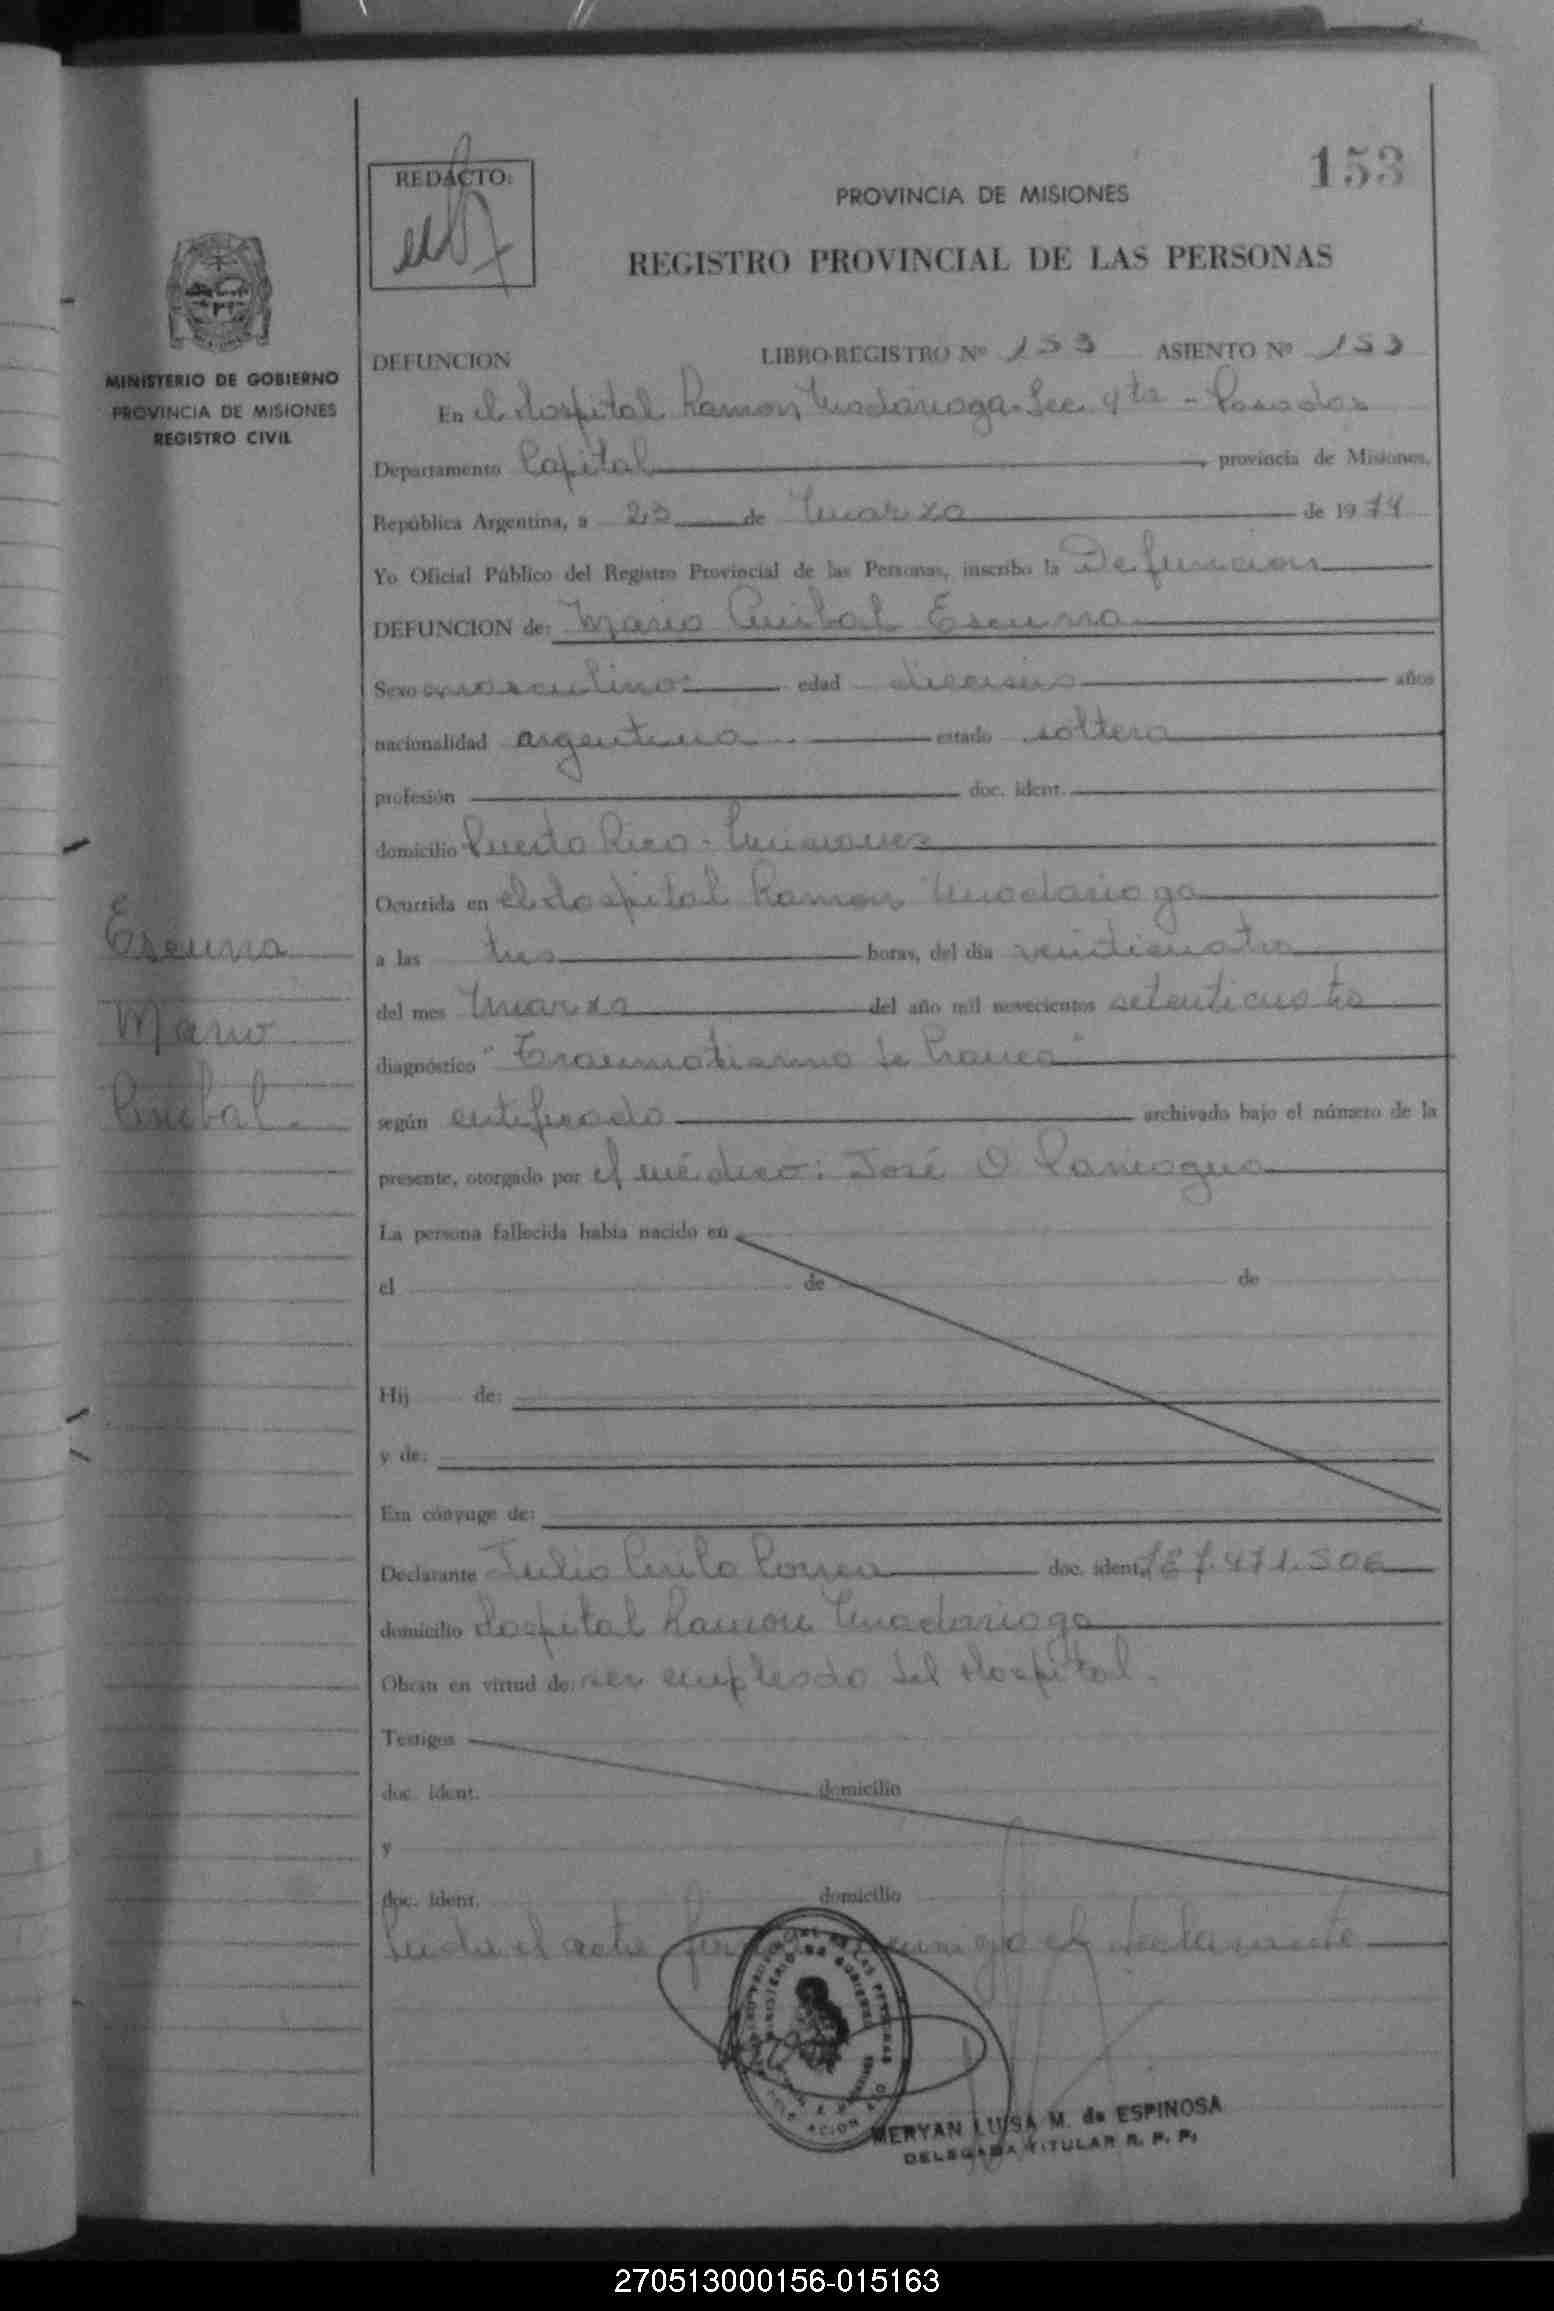 153
REDACTO:
PROVINCIA DE MISIONES
REGISTRO PROVINCIAL DE LAS PERSONAS
MINISTERIO DE GOBIERNO
PROVINCIA DE MISIONES
REGISTRO CIVIL
DEFUNCION LIBRO-REGISTRO Nº 153 ASIENTO Nº 153
En el Hospital Ramon Madariaga. Sec. 4ta - Posadas
Departamento Capital provincia de Misiones,
República Argentina, a 25 de Marzo de 1974
Yo Oficial Público del Registro Provincial de las Personas, inscribo la Defuncion
DEFUNCION de: Mario Anibal Escurra
Sexo masculino edad dieciseis años
nacionalidad argentina estado soltero
profesión doc. ident.
domicilio Puerto Rico - Misiones
Ocurrida en el Hospital Ramon Madariaga
a las tres horas, del día veinticuatro
del mes Marzo del año mil novecientos setenticuatro
diagnóstico "Traumatismo de Craneo"
según certificado archivado bajo el número de la
presente, otorgado por el médico: José O Paniagua
Escurra
Mario
Anibal.
La persona fallecida había nacido en
el de de
Hij de:
y de:
Era cónyuge de:
Declarante Julio Correa doc. ident. 7.471.506
domicilio Hospital Ramon Madariaga
Obran en virtud de: ser empleado del Hospital.
Testigos
doc. ident. domicilio
y
doc. ident. domicilio
Leida el acta conmigo el declarante
MERYAN LUISA M. de ESPINOSA
DELEGADA TITULAR R. P. P.
270513000156-015163